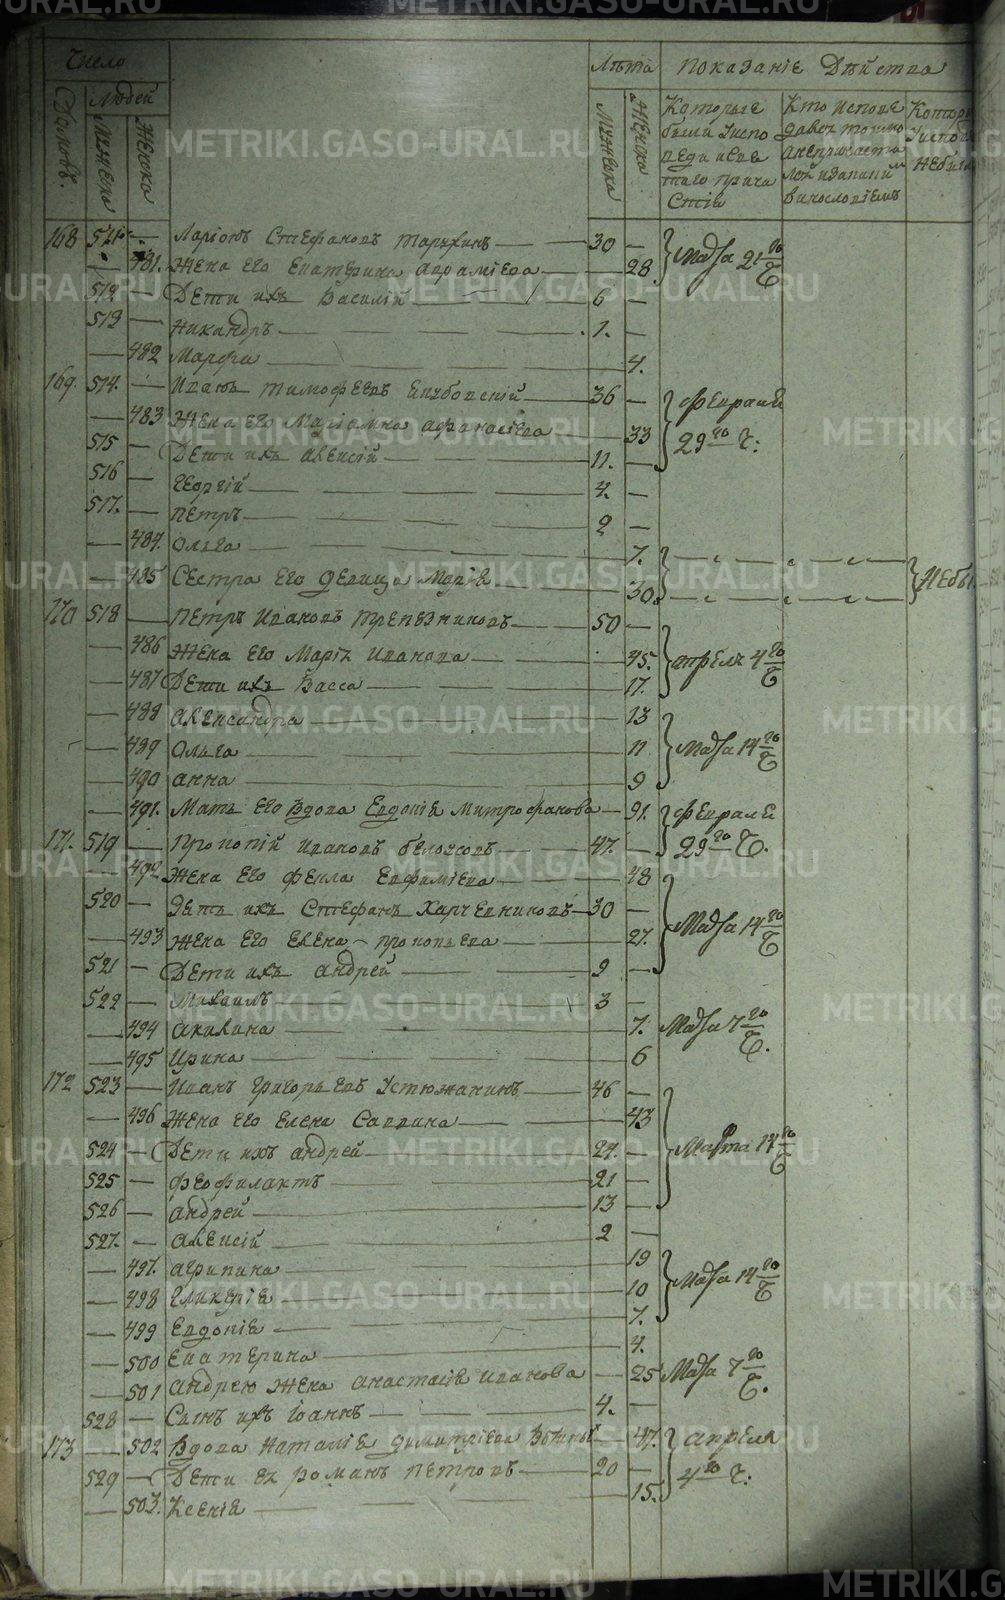 Число
Лѣта Показаніе Дѣйства
Домовъ. Людей
Мужеска Женска
Мужеска Женска
Которые были у исповеди и святаго причастія
Кто исповедался токмо а не причастился
168 511 — Ларіонъ Стефановъ 30 —
— 481. Жена его Екатерина — 28 Маїа 21 го Ч
512 — Дети ихъ Василій 6 —
513 — Никандръ 1. —
— 482 Марфа — 4.
169. 514. — Иванъ Тимофеевъ 36 — Февраля
— 483 Жена его Маріамна Афанасіева — 33 29 го Ч:
515 — Дети ихъ Алексій 11. —
516 — Георгій 4. —
517. — Петръ 2 —
— 484. Ольга — 7.
— 485 Сестра его девица Марія — 30. Небы
170 518 — Петръ Ивановъ Трепезниковъ 50 —
— 486 Жена его Марія Иванова — 45. Апрѣля 4 го Ч
— 487 Дети ихъ Васса — 17.
— 488 Александра — 13
— 489 Ольга — 11 Маїа 14 го Ч
— 490 Анна — 9
— 491. Мать его вдова Евдокія Митрофанова — 91. Февраля
171. 519 — Прокопій Ивановъ Белоусовъ 47. — 29 го Ч.
— 492 Жена его Фекла Евфиміева — 48
520 — Зять ихъ Стефанъ Харчевниковъ 30 —
— 493 Жена его Елена Прокопьева — 27. Маїа 14 го Ч
521 — Дети ихъ Андрей 9 —
522 — Михаилъ 3 —
— 494 Акилина — 7. Маїа 7 го Ч.
— 495 Ирина — 6
172 523 — Иванъ Григорьевъ Устюжанинъ 46 —
— 496 Жена его Елена Саввина — 43
524 — Дети ихъ Андрей 24. — Марта 14 го Ч
525 — Феофилактъ 21 —
526 — Андрей 13 —
527. — Алексій 2 —
— 497. Агрипина — 19
— 498 Гликерія — 10 Маїа 14 го Ч
— 499 Евдокія — 7.
— 500 Екатерина — 4.
— 501 Андрею жена Анастасія Иванова — 25 Маїа 7 го Ч.
528 — Сынъ ихъ Іоаннъ 4. —
173 — 502 Вдова Наталія Димитріева — 47. Апреля
529 — Дети ея Романъ Петровъ 20 — 4 го Ч:
— 503. Ксенія — 15.
METRIKI.GASO-URAL.RU